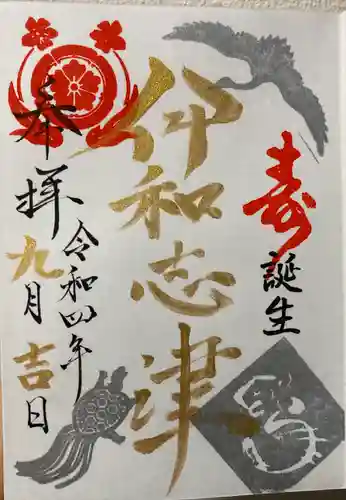 寿
誕生
伊和志津
奉拝
令和四年
九月吉日